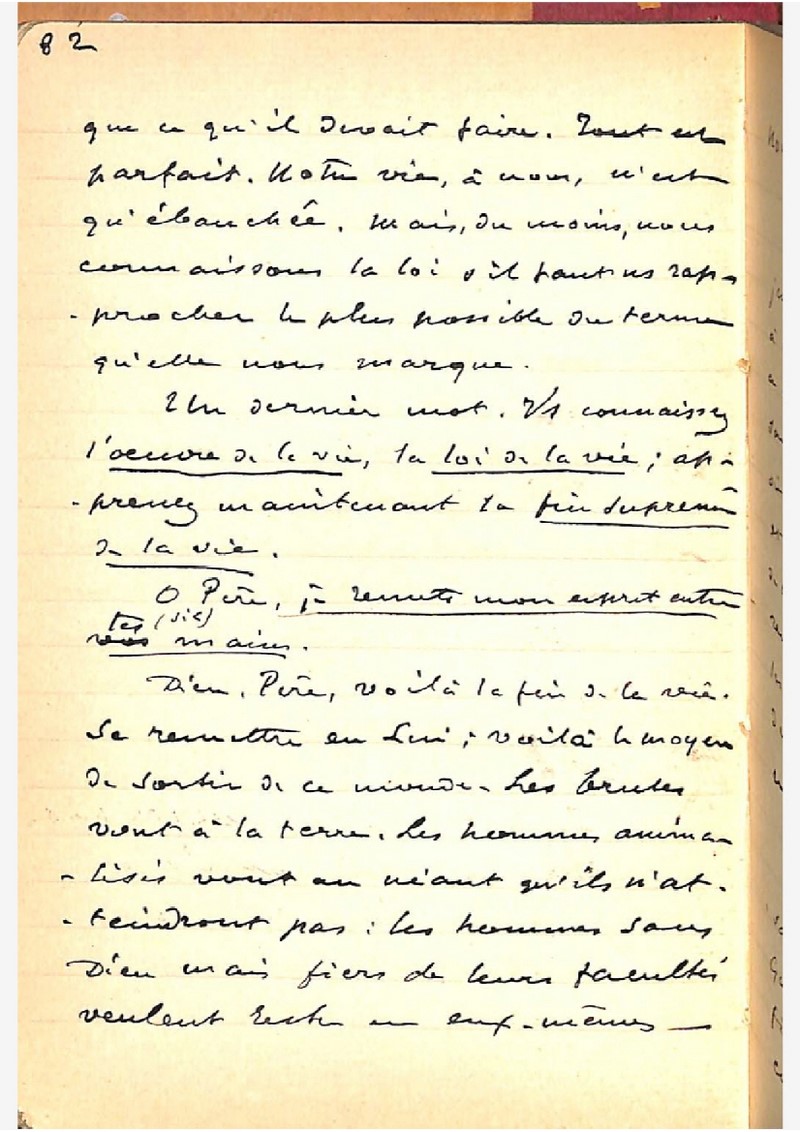 82
que ce qu'il devait faire. Tout est
parfait. Notre vie, à nous, n'est
qu'ébauchée. Mais, du moins, nous
connaissons la loi s'il faut ns rap-
-procher le plus possible du terme
qu'elle nous marque.
Un dernier mot. Vs connaissez
l'oeuvre de la vie, la loi de la vie ; ap-
-prenez maintenant la fin suprême
de la vie.
O Père, je remets mon esprit entre
tes (sic)
vos mains.
Dieu, Père, voilà la fin de la vie.
Se remettre en Lui ; voilà le moyen
de sortir de ce monde. Les brutes
vont à la terre. Les hommes anima-
-lisés vont au néant qu'ils n'at-
-teindront pas : les hommes sans
Dieu mais fiers de leurs facultés
veulent rester en eux-mêmes —